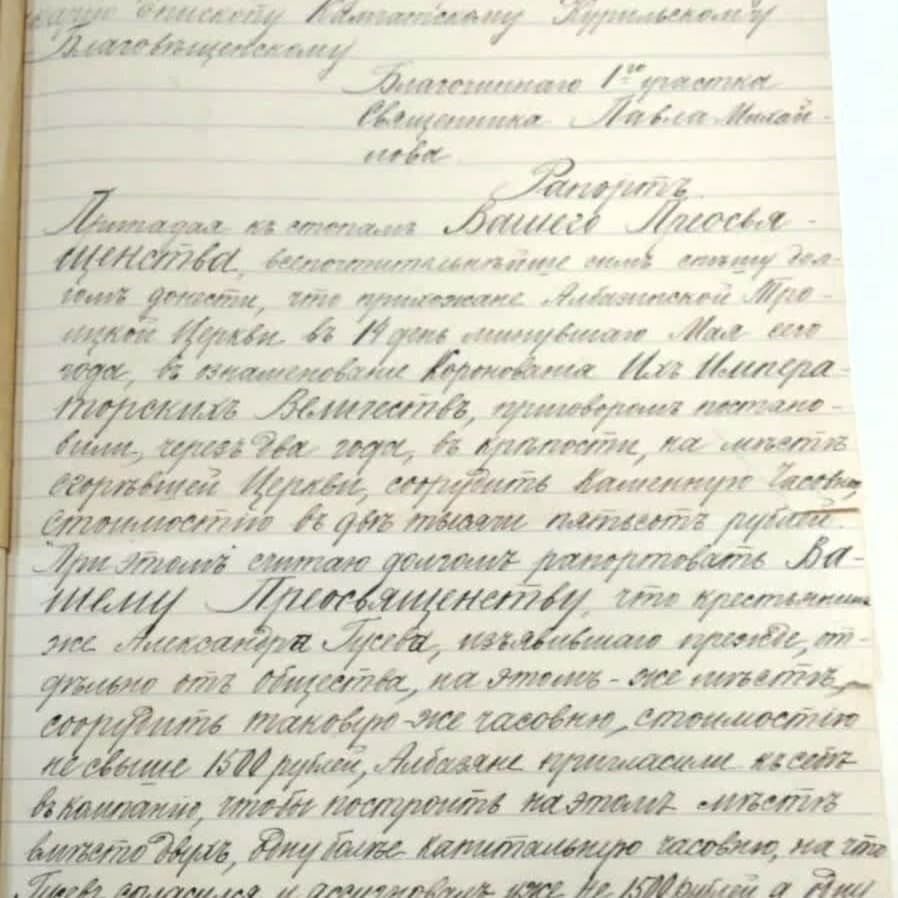 епископу Камчатскому Курильскому и
Благовѣщенскому
Благочиннаго 1го участка
Священника Павла Михай-
лова
Рапортъ
Припадая къ стопамъ Вашего Преосвя-
щенства, всепочтительнѣйше симъ спѣшу дол-
гомъ донести, что прихожане Албазинской Тро-
ицкой Церкви въ 14 день минувшаго Мая сего
года, въ ознаменованіе Коронованія Ихъ Импера-
торскихъ Величествъ, приговоромъ постано-
вили, черезъ два года, въ крѣпости, на мѣстѣ
сгорѣвшей Церкви, соорудить каменную Часовню,
стоимостію въ двѣ тысячи пятьсотъ рублей.
При этомъ считаю долгомъ рапортовать Ва-
шему Преосвященству, что крестьянина
же Александра Гусева, изъявившаго прежде, от-
дѣльно отъ общества, на этомъ-же мѣстѣ,
соорудить таковую-же часовню, стоимостію
не свыше 1500 рублей, Албазяне пригласили къ себѣ
въ компанію, чтобы построить на этомъ мѣстѣ
вмѣсто двухъ, одну болѣе капитальную часовню, на что
Гусевъ согласился и ассигновалъ уже не 1500 рублей а одну